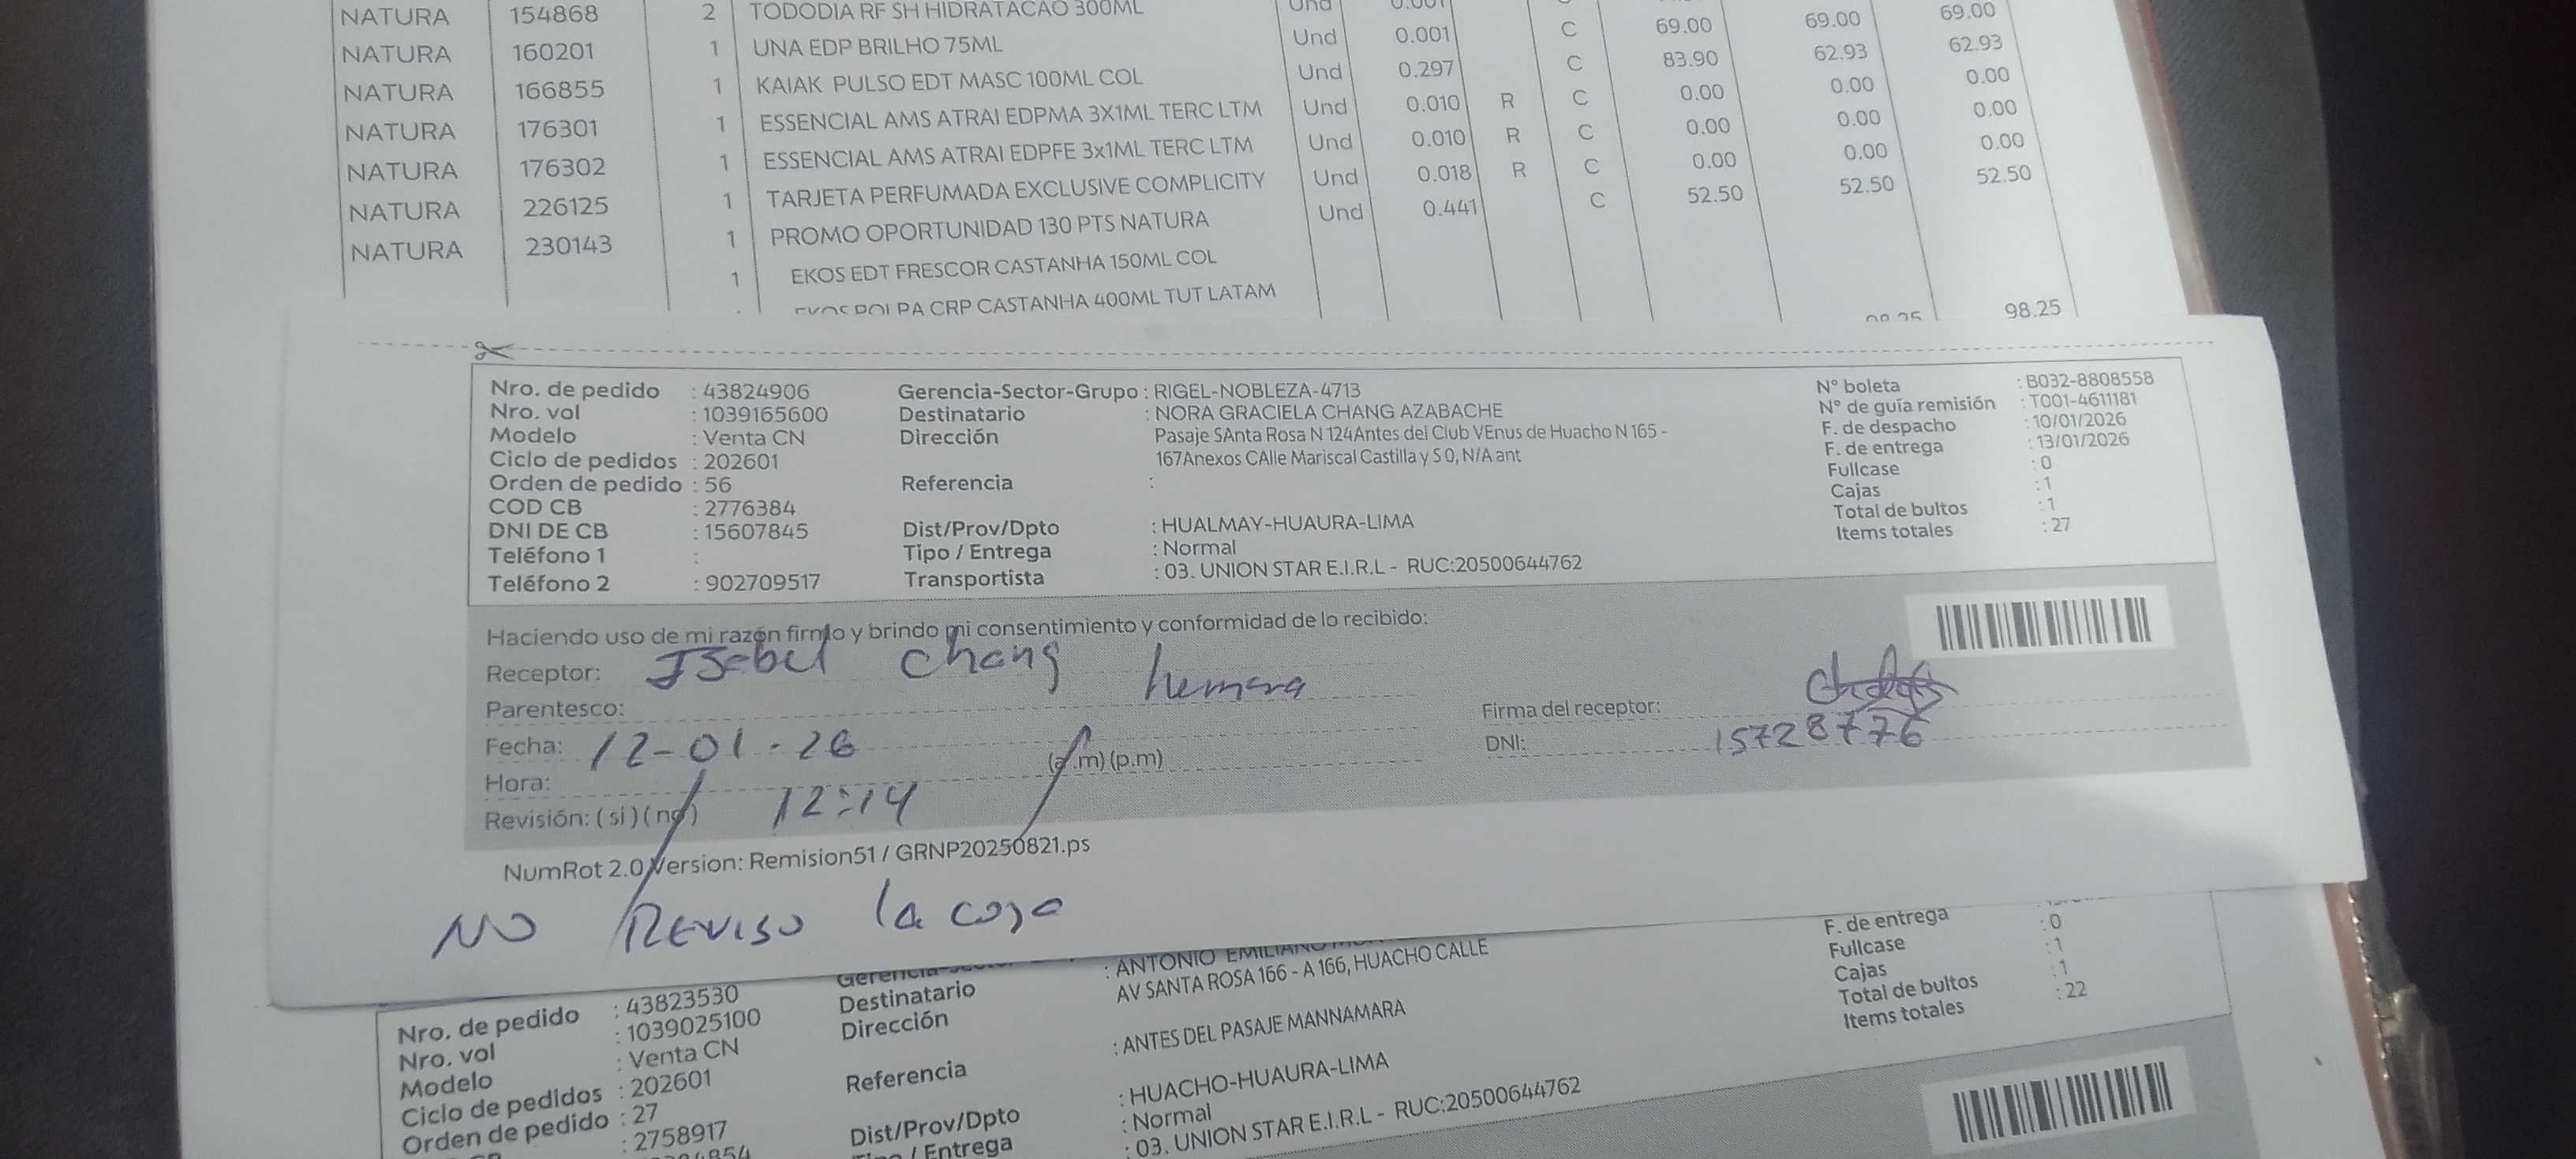 NATURA 154868 2 TODODIA RF SH HIDRATACAO 300ML Und 0.001 69.00 69.00 69.00
NATURA 160201 1 UNA EDP BRILHO 75ML Und 0.001 C 83.90 62.93 62.93
NATURA 166855 1 KAIAK PULSO EDT MASC 100ML COL Und 0.297 C 0.00 0.00 0.00
NATURA 176301 1 ESSENCIAL AMS ATRAI EDPMA 3X1ML TERC LTM Und 0.010 R C 0.00 0.00 0.00
NATURA 176302 1 ESSENCIAL AMS ATRAI EDPFE 3x1ML TERC LTM Und 0.010 R C 0.00 0.00 0.00
NATURA 226125 1 TARJETA PERFUMADA EXCLUSIVE COMPLICITY Und 0.018 R C 52.50 52.50 52.50
NATURA 230143 1 PROMO OPORTUNIDAD 130 PTS NATURA Und 0.441 C
1 EKOS EDT FRESCOR CASTANHA 150ML COL
EKOS POLPA CRP CASTANHA 400ML TUT LATAM
98.25 98.25
Nro. de pedido : 43824906 Gerencia-Sector-Grupo : RIGEL-NOBLEZA-4713 N° boleta : B032-8808558
Nro. vol : 1039165600 Destinatario : NORA GRACIELA CHANG AZABACHE N° de guía remisión : T001-4611181
Modelo : Venta CN Dirección Pasaje SAnta Rosa N 124Antes del Club VEnus de Huacho N 165 - F. de despacho : 10/01/2026
Ciclo de pedidos : 202601 167Anexos CAlle Mariscal Castilla y S 0, N/A ant F. de entrega : 13/01/2026
Orden de pedido : 56 Referencia : Fullcase : 0
COD CB : 2776384 Cajas : 1
DNI DE CB : 15607845 Dist/Prov/Dpto : HUALMAY-HUAURA-LIMA Total de bultos : 1
Teléfono 1 : Tipo / Entrega : Normal Items totales : 27
Teléfono 2 : 902709517 Transportista : 03. UNION STAR E.I.R.L - RUC:20500644762
Haciendo uso de mi razón firmo y brindo mi consentimiento y conformidad de lo recibido:
Receptor: Isabel Chang
Parentesco: hermana Firma del receptor:
Fecha: 12-01-26 DNI: 15728776
Hora: 12:14 (a.m) (p.m)
Revisión: ( si ) ( no )
NumRot 2.0 Version: Remision51 / GRNP20250821.ps
NO REVISO la caja
Gerencia-Sector-
Nro. de pedido : 43823530 Destinatario : ANTONIO EMILIANO F. de entrega
Nro. vol : 1039025100 Dirección AV SANTA ROSA 166 - A 166, HUACHO CALLE Fullcase : 0
Modelo : Venta CN : ANTES DEL PASAJE MANNAMARA Cajas : 1
Ciclo de pedidos : 202601 Referencia Total de bultos : 1
Orden de pedido : 27 Dist/Prov/Dpto : HUACHO-HUAURA-LIMA Items totales : 22
: 2758917 / Entrega : Normal
: 03. UNION STAR E.I.R.L - RUC:20500644762